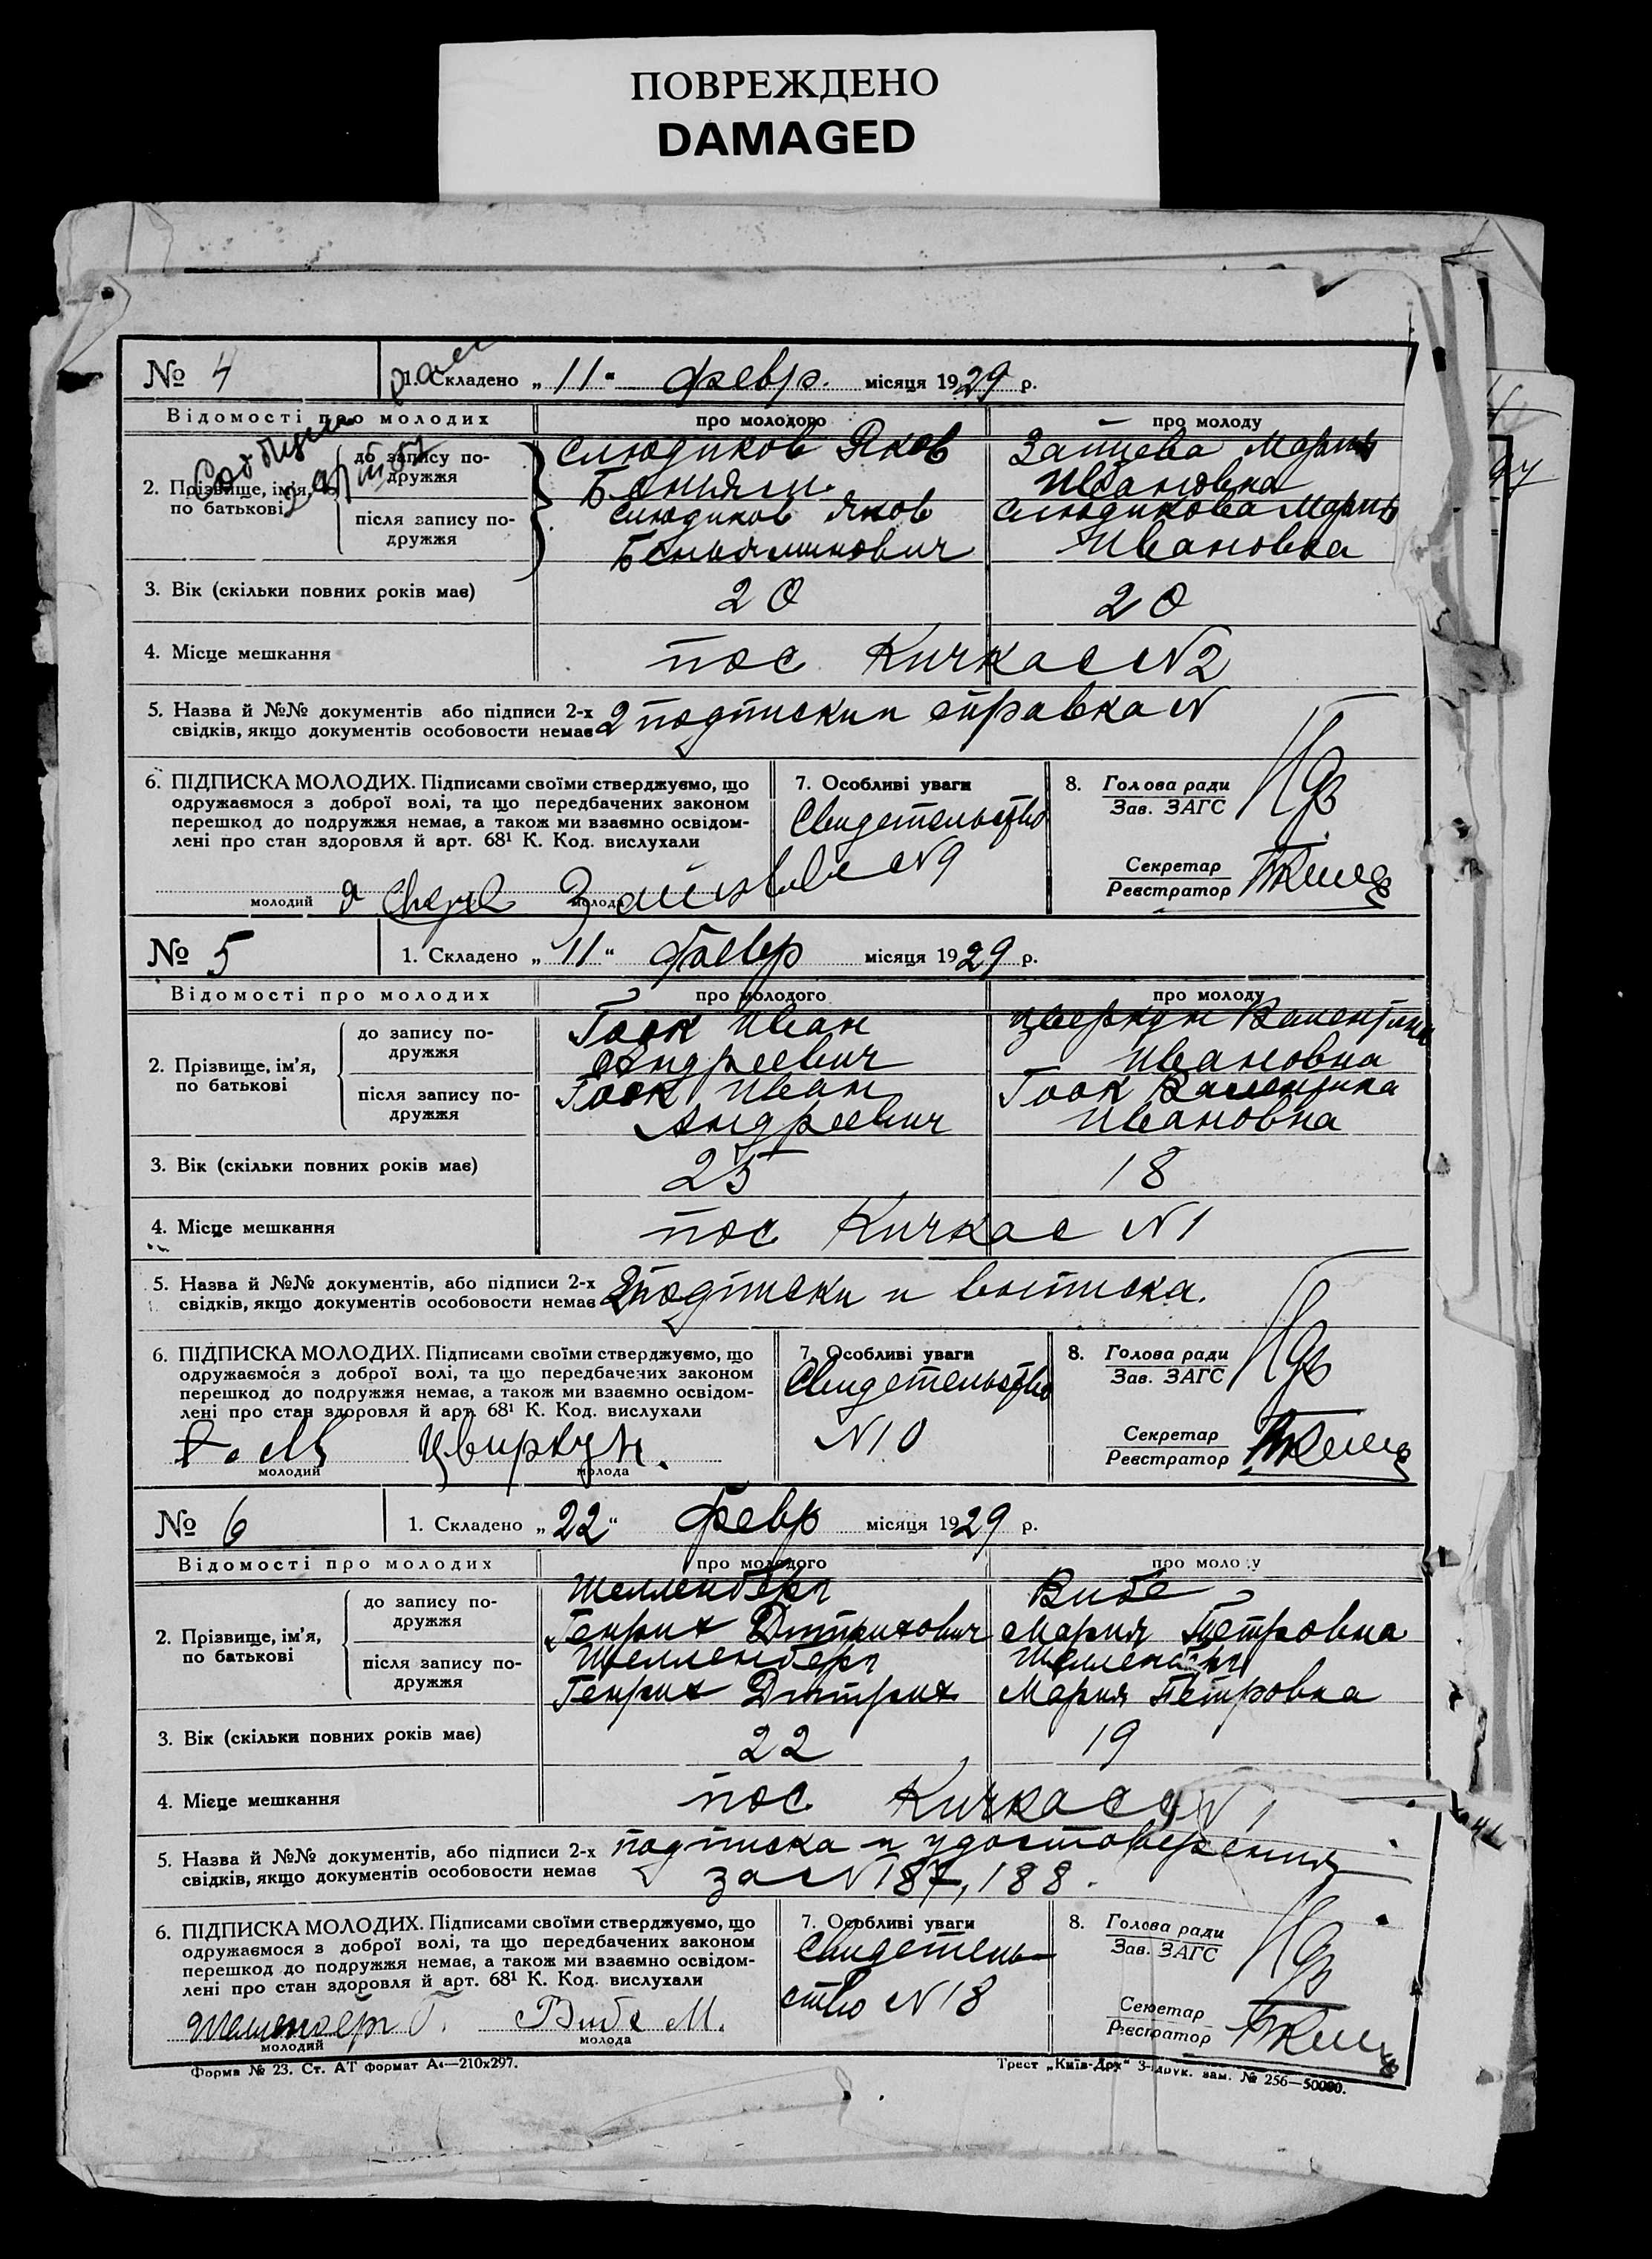 ПОВРЕЖДЕНО
DAMAGED
№ 4
1. Складено „ 11 “ февр. місяця 1929 р.
Відомості про молодих про молодого про молоду
2. Прізвище, ім'я, по батькові
до запису подружжя
Слюдиков Яков Зайцева Мария
Беньям. Ивановна
після запису подружжя
Слюдиков Яков Слюдикова Мария
Беньяминович Ивановна
3. Вік (скільки повних років має) 20 20
4. Місце мешкання пос Кичкас N2
5. Назва й №№ документів або підписи 2-х 2 подписки и справка N
свідків, якщо документів особовости немає
6. ПІДПИСКА МОЛОДИХ. Підписами своїми стверджуємо, що
одружаємося з доброї волі, та що передбачених законом
перешкод до подружжя немає, а також ми взаємно освідом-
лені про стан здоровля й арт. 68¹ К. Код. вислухали
молодий молода
7. Особливі уваги
Свидетельство
N9
8. Голова ради
Зав. ЗАГС
Секретар
Реєстратор
№ 5
1. Складено „ 11 “ февр місяця 1929 р.
Відомості про молодих про молодого про молоду
2. Прізвище, ім'я, по батькові
до запису подружжя
Гоок Иван Цверкун Валентина
Андреевич Ивановна
після запису подружжя
Гоок Иван Гоок Валентина
Андреевич Ивановна
3. Вік (скільки повних років має) 25 18
4. Місце мешкання пос Кичкас N1
5. Назва й №№ документів, або підписи 2-х 2 подписки и выписка.
свідків, якщо документів особовости немає
6. ПІДПИСКА МОЛОДИХ. Підписами своїми стверджуємо, що
одружаємося з доброї волі, та що передбачених законом
перешкод до подружжя немає, а також ми взаємно освідом-
лені про стан здоровля й арт. 68¹ К. Код. вислухали
Цвиркун.
молодий молода
7. Особливі уваги
Свидетельство
N10
8. Голова ради
Зав. ЗАГС
Секретар
Реєстратор
№ 6
1. Складено „ 22 “ февр місяця 1929 р.
Відомості про молодих про молодого про молоду
2. Прізвище, ім'я, по батькові
до запису подружжя
Шелленберг Вибе
Генрих Дитрихович Мария Петровна
після запису подружжя
Шелленберг Шелленберг
Генрих Дитрих Мария Петровна
3. Вік (скільки повних років має) 22 19
4. Місце мешкання пос Кичкас N1
5. Назва й №№ документів, або підписи 2-х подписка и удостоверения
свідків, якщо документів особовости немає за N187, 188.
6. ПІДПИСКА МОЛОДИХ. Підписами своїми стверджуємо, що
одружаємося з доброї волі, та що передбачених законом
перешкод до подружжя немає, а також ми взаємно освідом-
лені про стан здоровля й арт. 68¹ К. Код. вислухали
Шеленберг Г. Вибе М.
молодий молода
7. Особливі уваги
Свидетель-
ство N18
8. Голова ради
Зав. ЗАГС
Секретар
Реєстратор
Форма № 23. Ст. АТ формат А₄—210x297.
Трест „Київ-Друк“ 3-
друк. зам. № 256—50000.